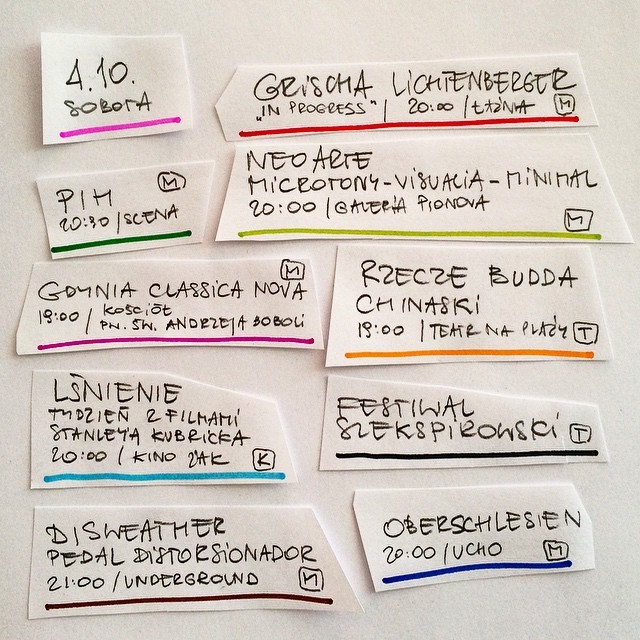 4.10.
SOBOTA
GRISCHA LICHTENBERGER
„IN PROGRESS" / 20:00 / ŁAŹNIA M
PIH M
20:30 / SCENA
NEO ARTE
MICROTONY - VISUALIA - MINIMAL
20:00 / GALERIA PIONOVA
M
GDYNIA CLASSICA NOVA M
19:00 / KOŚCIÓŁ
PN. ŚW. ANDRZEJA BOBOLI
RZECZE BUDDA
CHINASKI
19:00 / TEATR NA PLAŻY T
LŚNIENIE
TYDZIEŃ Z FILMAMI
STANLEY'A KUBRICKA
20:00 / KINO ŻAK K
FESTIWAL
SZEKSPIROWSKI T
DISWEATHER
PEDAL DISTORSIONADOR
21:00 / UNDERGROUND M
OBERSCHLESIEN
20:00 / UCHO M